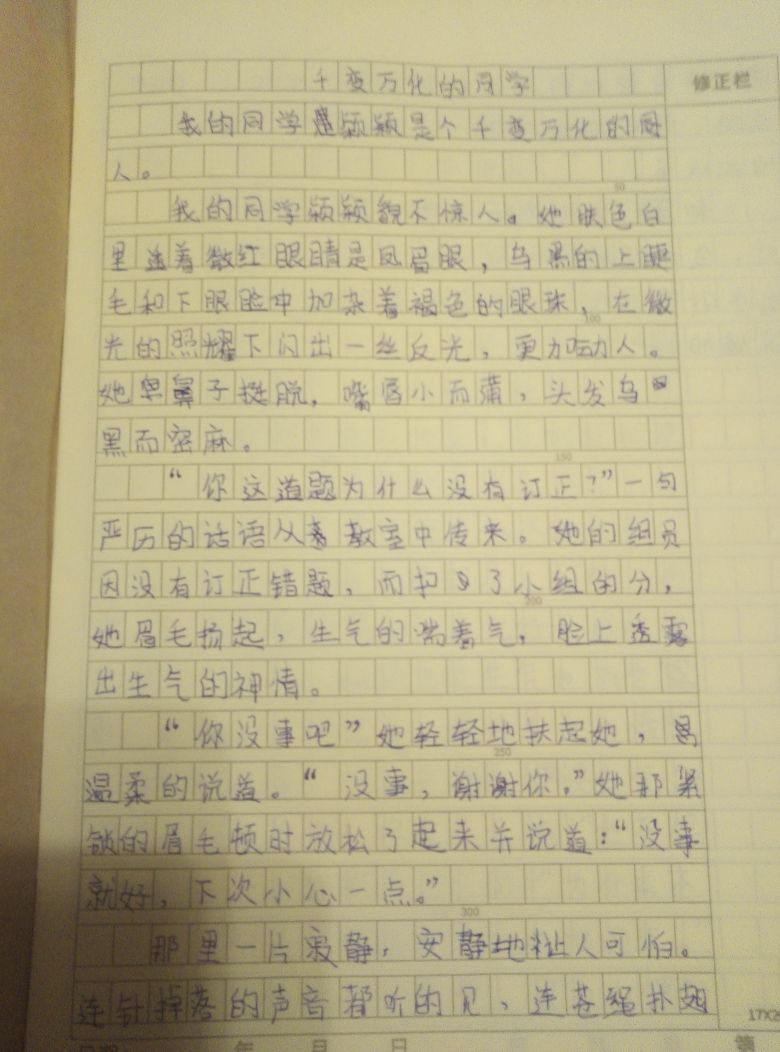 千变万化的同学
修正栏
我的同学颖颖是个千变万化的
人。
50
我的同学颖颖貌不惊人。她肤色白
里透着微红眼睛是凤眉眼，乌黑的上睫
毛和下眼睑中加杂着褐色的眼珠，在微
100
光的照耀下闪出一丝反光，更加动人。
她鼻子挺脱，嘴唇小而薄，头发乌
黑而密麻。
150
“你这道题为什么没有订正？”一句
严厉的话语从教室中传来。她的组员
因没有订正错题，而扣了小组的分，
200
她眉毛扬起，生气的喘着气，脸上透露
出生气的神情。
“你没事吧”她轻轻地扶起她，
250
温柔的说道。“没事，谢谢你。”她那紧
锁的眉毛顿时放松了起来并说道：“没事
就好，下次小心一点。”
300
那里一片寂静，安静地让人可怕。
连针掉落的声音都听的见，连苍蝇扑翅
17X2
年 月 日 第